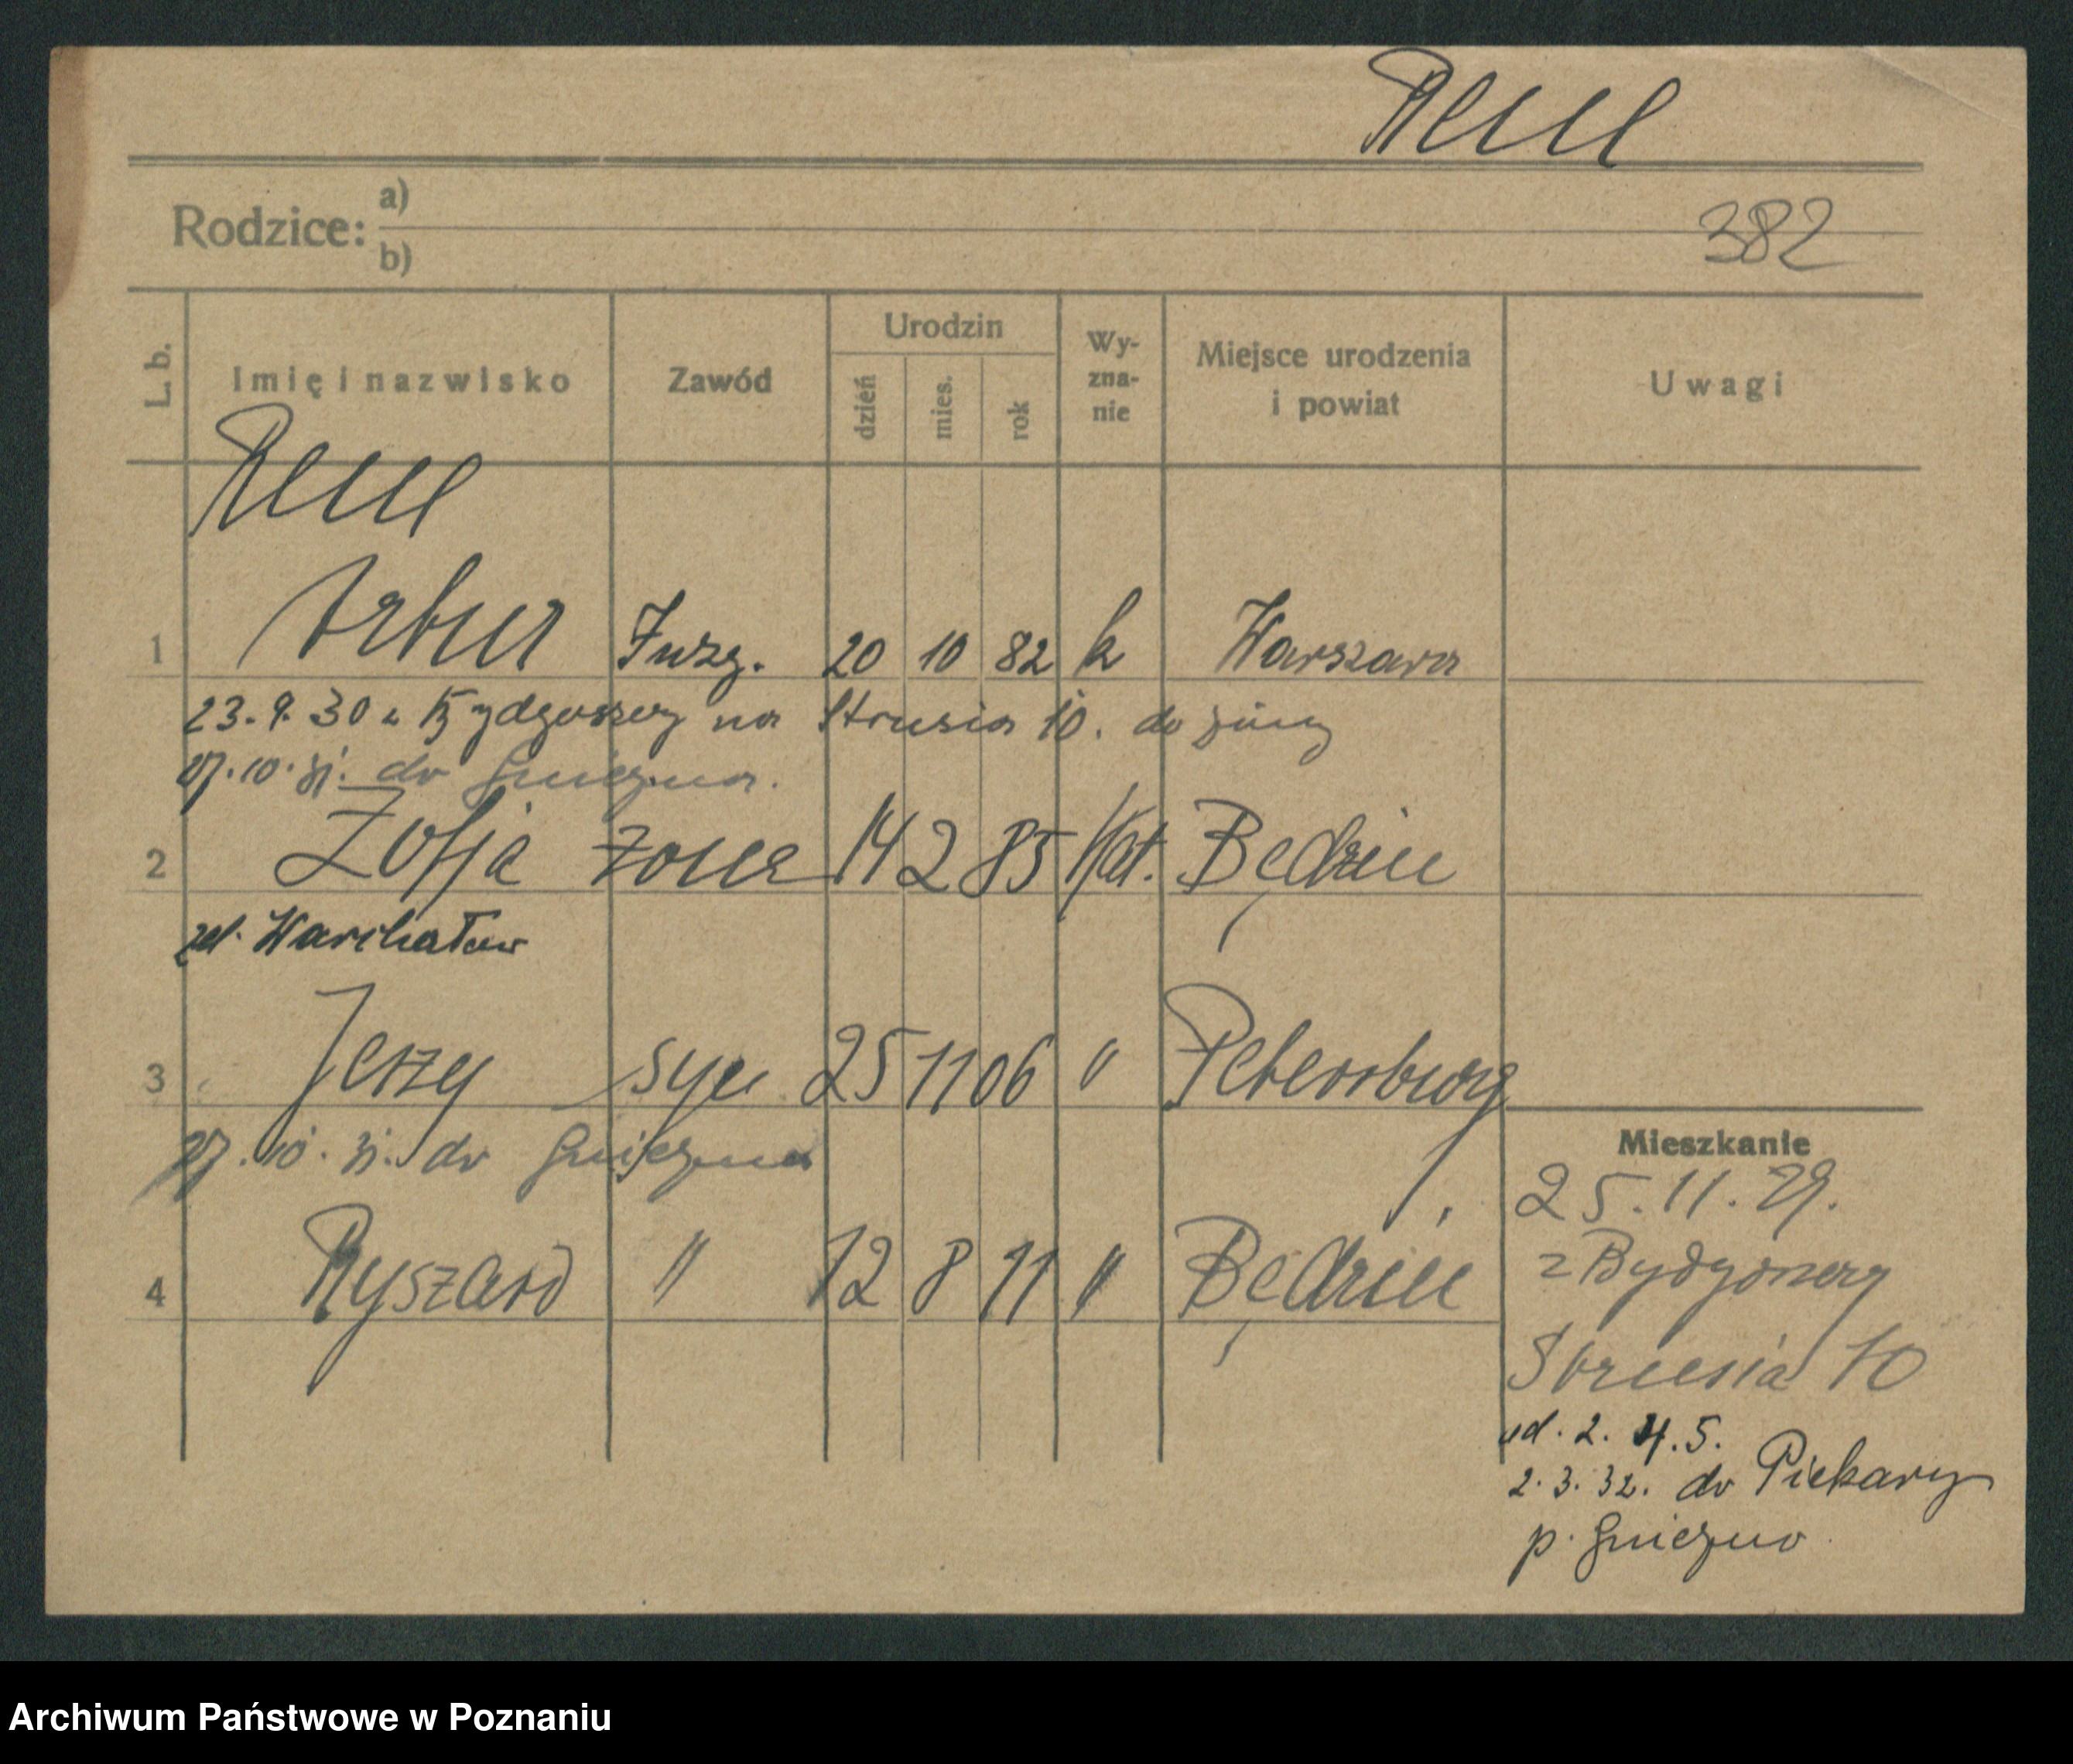 Reul
Rodzice: a)
b)
382
L. b.
Imię i nazwisko
Zawód
Urodzin
dzień
mies.
rok
Wy-
zna-
nie
Miejsce urodzenia
i powiat
Uwagi
Reul
1 Artur Inżg. 20 10 82 k Warszawa
23.9.30 z Bydgoszczy na Strusia 10. do żony
27.10.31. do Gniezna.
2 Zofja żona 14 2 85 Kat. Będzin
zd. Warchałow
3 Jerzy syn 25 11 06 " Petersburg
27.10.31. do Gniezna
4 Ryszard " 12 8 11 " Będzin
Mieszkanie
25.11.29.
z Bydgoszczy
Strusia 10
od. 2. 4. 5.
2.3.32. do Piekary
p. Gniezno
Archiwum Państwowe w Poznaniu